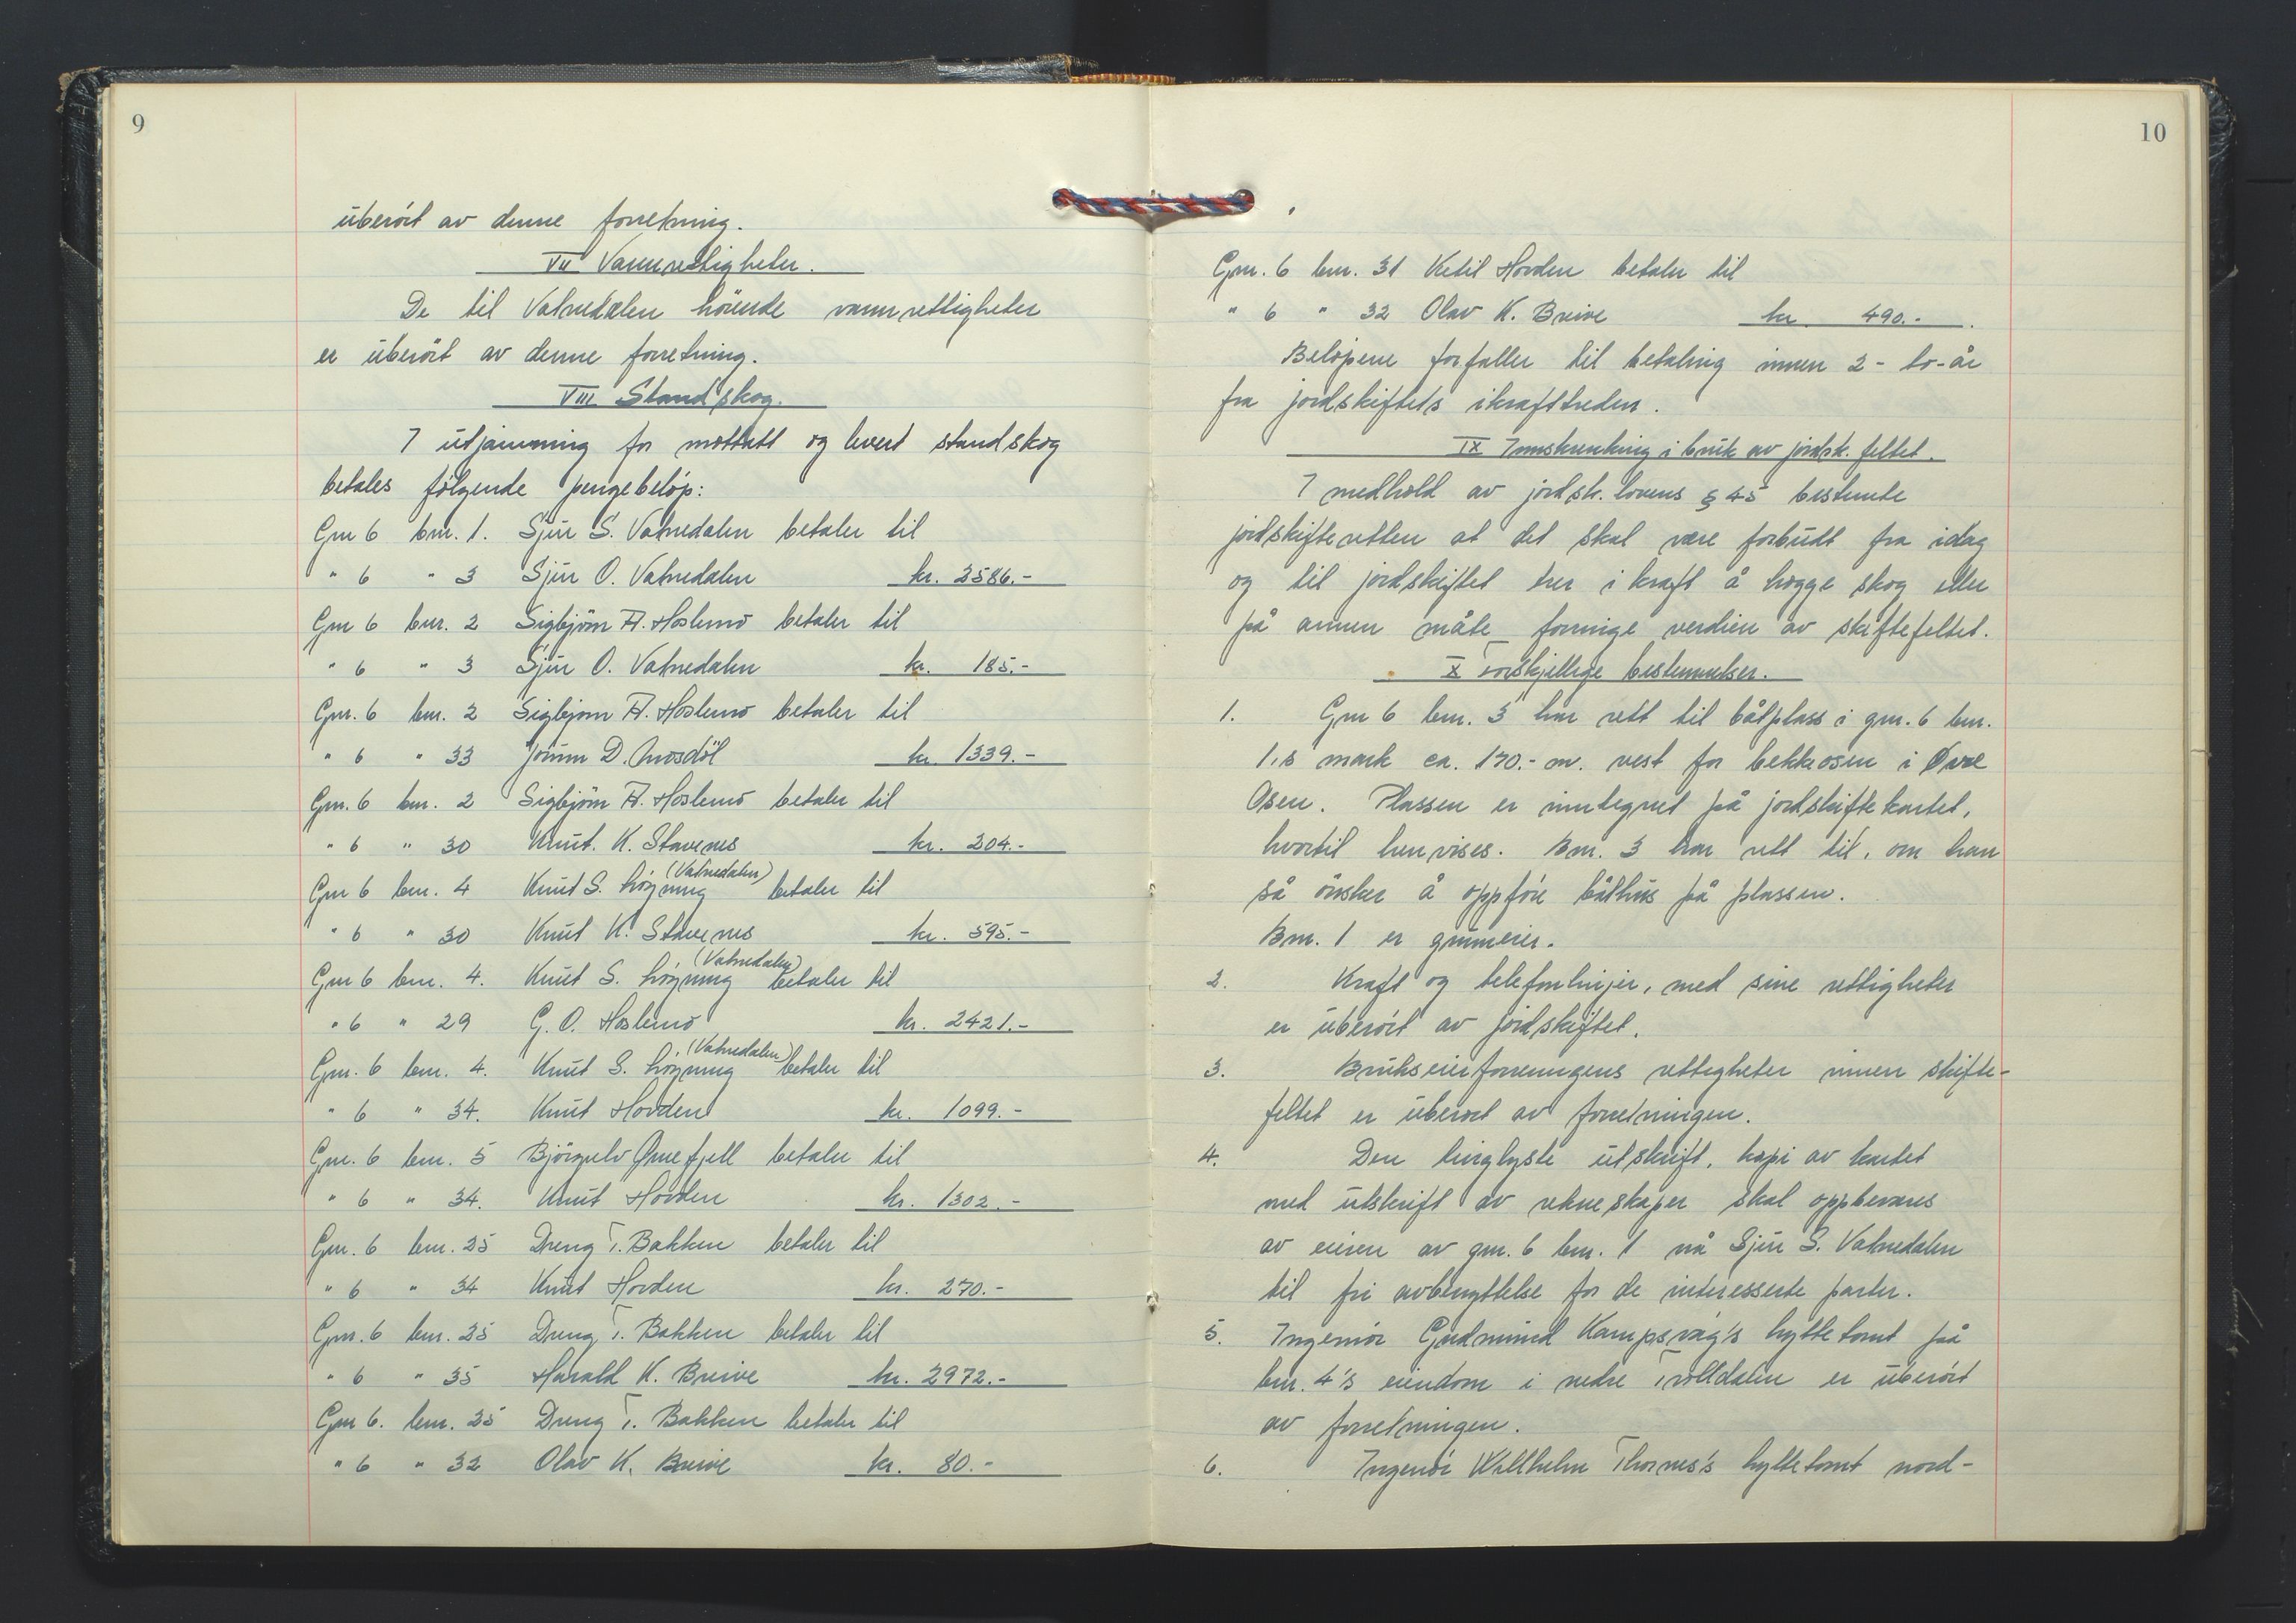 9
uberört av denne forretning.
VII Vannrettigheter.
De til Vatnedalen hörende vannrettigheter
er uberört av denne forretning.
VIII Standskog.
I utjamning for mottatt og levert standskog
betales fölgende pengebelöp:
Gnr 6 bnr. 1. Sjur S. Vatnedalen betaler til
" 6 " 3 Sjur O. Vatnedalen kr. 2586.-
Gnr 6 bnr. 2 Sigbjörn A. Hoslemo betaler til
" 6 " 3 Sjur O. Vatnedalen kr. 185.-
Gnr. 6 bnr. 2 Sigbjörn A. Hoslemo betaler til
" 6 " 33 Jorunn D. Mosdöl kr. 1339.-
Gnr. 6 bnr. 2 Sigbjörn A. Hoslemo betaler til
" 6 " 30 Knut. K. Stavenes kr. 204.-
(Vatnedalen)
Gnr 6 bnr. 4 Knut S. Löyning betaler til
" 6 " 30 Knut K. Stavenes kr. 595.-
(Vatnedalen)
Gnr 6 bnr. 4. Knut S. Löyning betaler til
" 6 " 29 G. O. Hoslemo kr. 2421.-
(Vatnedalen)
Gnr. 6 bnr. 4. Knut S. Löyning betaler til
" 6 " 34. Knut Hovden kr. 1099.-
Gnr. 6 bnr. 5 Björgulv Ørnefjell betaler til
" 6 " 34. Knut Hovden kr. 1302.-
Gnr. 6 bnr. 25 Dreng T. Bakken betaler til
" 6 " 34 Knut Hovden kr. 270.-
Gnr. 6 bnr. 25 Dreng T. Bakken betaler til
" 6 " 35 Harald K. Breive kr. 2972.-
Gnr 6. bnr. 25 Dreng T. Bakken betaler til
" 6 " 32 Olav K. Breive kr. 80.-
10
Gnr. 6 bnr. 31 Ketil Hovden betaler til
" 6 " 32 Olav K. Breive kr. 490.-
Belöpene forfaller til betaling innen 2-to-år
fra jordskiftets ikrafttreden.
IX Innskrenking i bruk av jordsk. feltet.
I medhold av jordsk. lovens § 45 bestemte
jordskifteretten at det skal være forbudt fra idag
og til jordskiftet trer i kraft å hogge skog eller
på annen måte forringe verdien av skiftefeltet.
X Forskjellige bestemmelser.
1. Gnr 6 bnr. 3 har rett til båtplass i gnr. 6 bnr.
1,s mark ca. 170.- m. vest for bekkosen i Øvre
Osen. Plassen er inntegnet på jordskiftekartet,
hvortil henvises. Bnr. 3 har rett til, om han
så önsker å oppföre båthus på plassen.
Bnr. 1 er grunneier.
2. Kraft og telefonlinjer, med sine rettigheter
er uberört av jordskiftet.
3. Brukseierforeningens rettigheter innen skifte-
feltet er uberört av forretningen.
4. Den tinglyste utskrift, kopi av kartet
med utskrift av rekneskaper skal oppbevares
av eieren av gnr. 6 bnr. 1 nå Sjur S. Vatnedalen
til fri avbenyttelse for de interesserte parter.
5. Ingeniör Gudmund Kampsvåg's hyttetomt på
bnr. 4's eiendom i nedre Trolldalen er uberört
av forretningen.
6. Ingeniör Willhelm Thornes's hyttetomt nord-